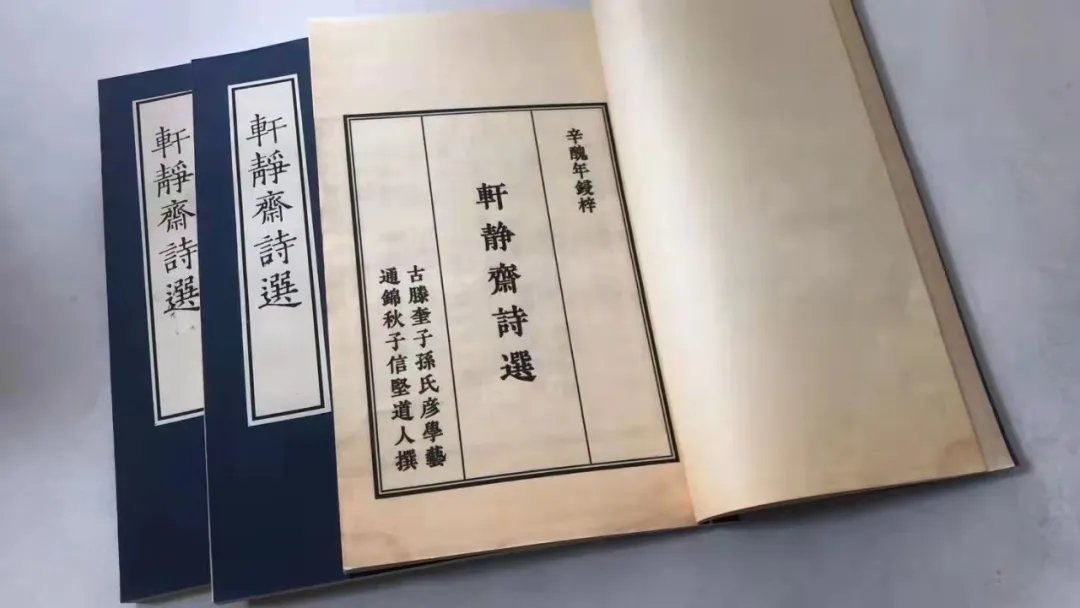 軒靜齋詩選
軒靜齋詩選
辛醜年鋟梓
軒静齋詩選
古滕奎子孫氏彦學藝
通錦秋子信堅道人撰